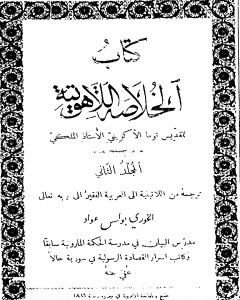 كتاب
الخلاصة اللاهوتية
للقديس توما الاكويني الاستاذ الملكي
المجلد الثاني
ترجمهُ من اللاتينية الى العربية الفقير الى ربهِ تعالى
الخوري بولس عواد
مدرّس البيان في مدرسة الحكمة المارونية سابقًا
وكاتب اسرار القصادة الرسولية في سورية حالاً
عُني عنهُ